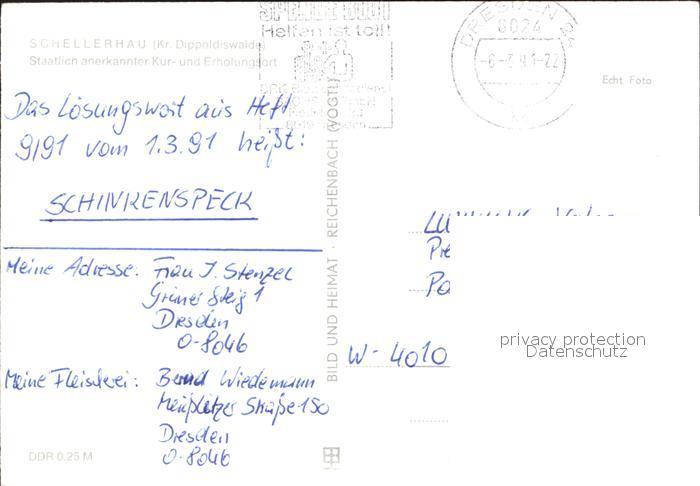 SCHELLERHAU (Kr. Dippoldiswalde)
Staatlich anerkannter Kur- und Erholungsort
Das Lösungswort aus Heft
9/91 vom 1.3.91 heißt:
SCHINKENSPECK
Meine Adresse: Frau J. Stenzel
Grüner Steig 1
Dresden
O-8046
Meine Fleischerei: Bernd Wiedemann
Meußlitzer Straße 150
Dresden
O-8046
DDR 0.25 M
BILD UND HEIMAT · REICHENBACH (VOGTL)
Helfen ist toll!
DRESDEN
8024
Echt Foto
W-4010
privacy protection
Datenschutz